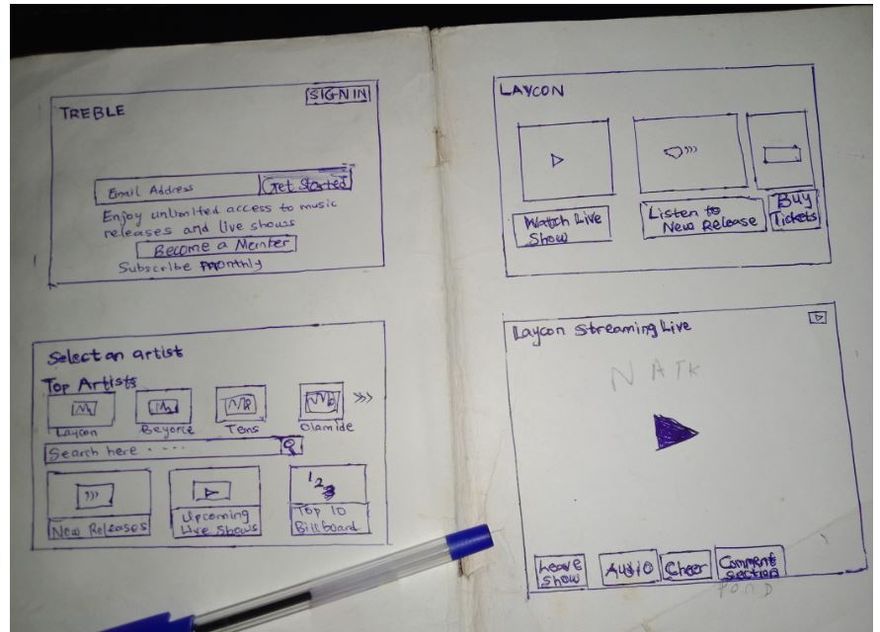 TREBLE
SIGN IN
Email Address
Get Started
Enjoy unlimited access to music
releases and live shows
Become a Member
Subscribe monthly
Select an artist
Top Artists
Laycon
Beyonce
Tems
Olamide
Search here ....
New Releases
Upcoming
Live Shows
1 2 3
Top 10
Billboard
LAYCON
Watch Live
Show
Listen to
New Release
Buy
Tickets
Laycon Streaming Live
Leave
Show
Audio
Cheer
Comment
section